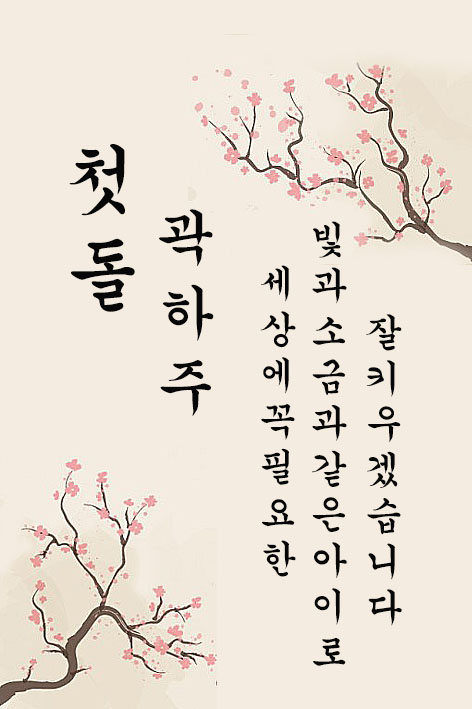 첫돌
곽하주
세상에꼭필요한
빛과소금과같은아이로
잘키우겠습니다